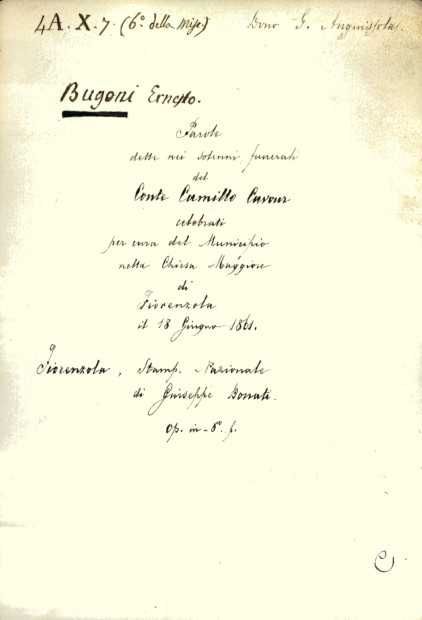 4A. X. 7. (6º della Misc.) Dono G. Anguissola.
Bugoni Ernesto.
Parole
dette nei solenni funerali
del
Conte Camillo Cavour
celebrati
per cura del Municipio
nella Chiesa Maggiore
di
Fiorenzola
il 18 Giugno 1861.
Fiorenzola, Stamp. Nazionale
di Guiseppe Bonati.
Op. in-8º. f.